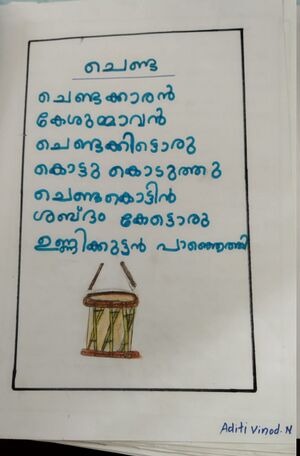 ചെണ്ട
ചെണ്ടക്കാരൻ
കേശുമ്മാവൻ
ചെണ്ടക്കിട്ടൊരു
കൊട്ടു കൊടുത്തു
ചെണ്ടകൊട്ടിൻ
ശബ്ദം കേട്ടൊരു
ഉണ്ണിക്കുട്ടൻ പാഞ്ഞെത്തി
Aditi Vinod. N